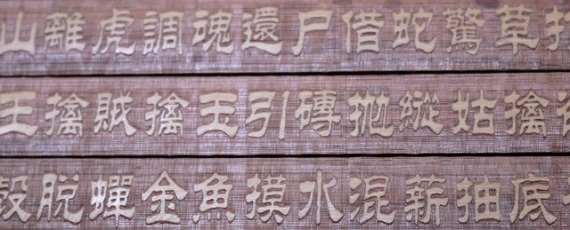 草驚蛇借尸還魂調虎離山
擒姑縱拋磚引玉擒賊擒王
底抽薪混水摸魚金蟬脫殼